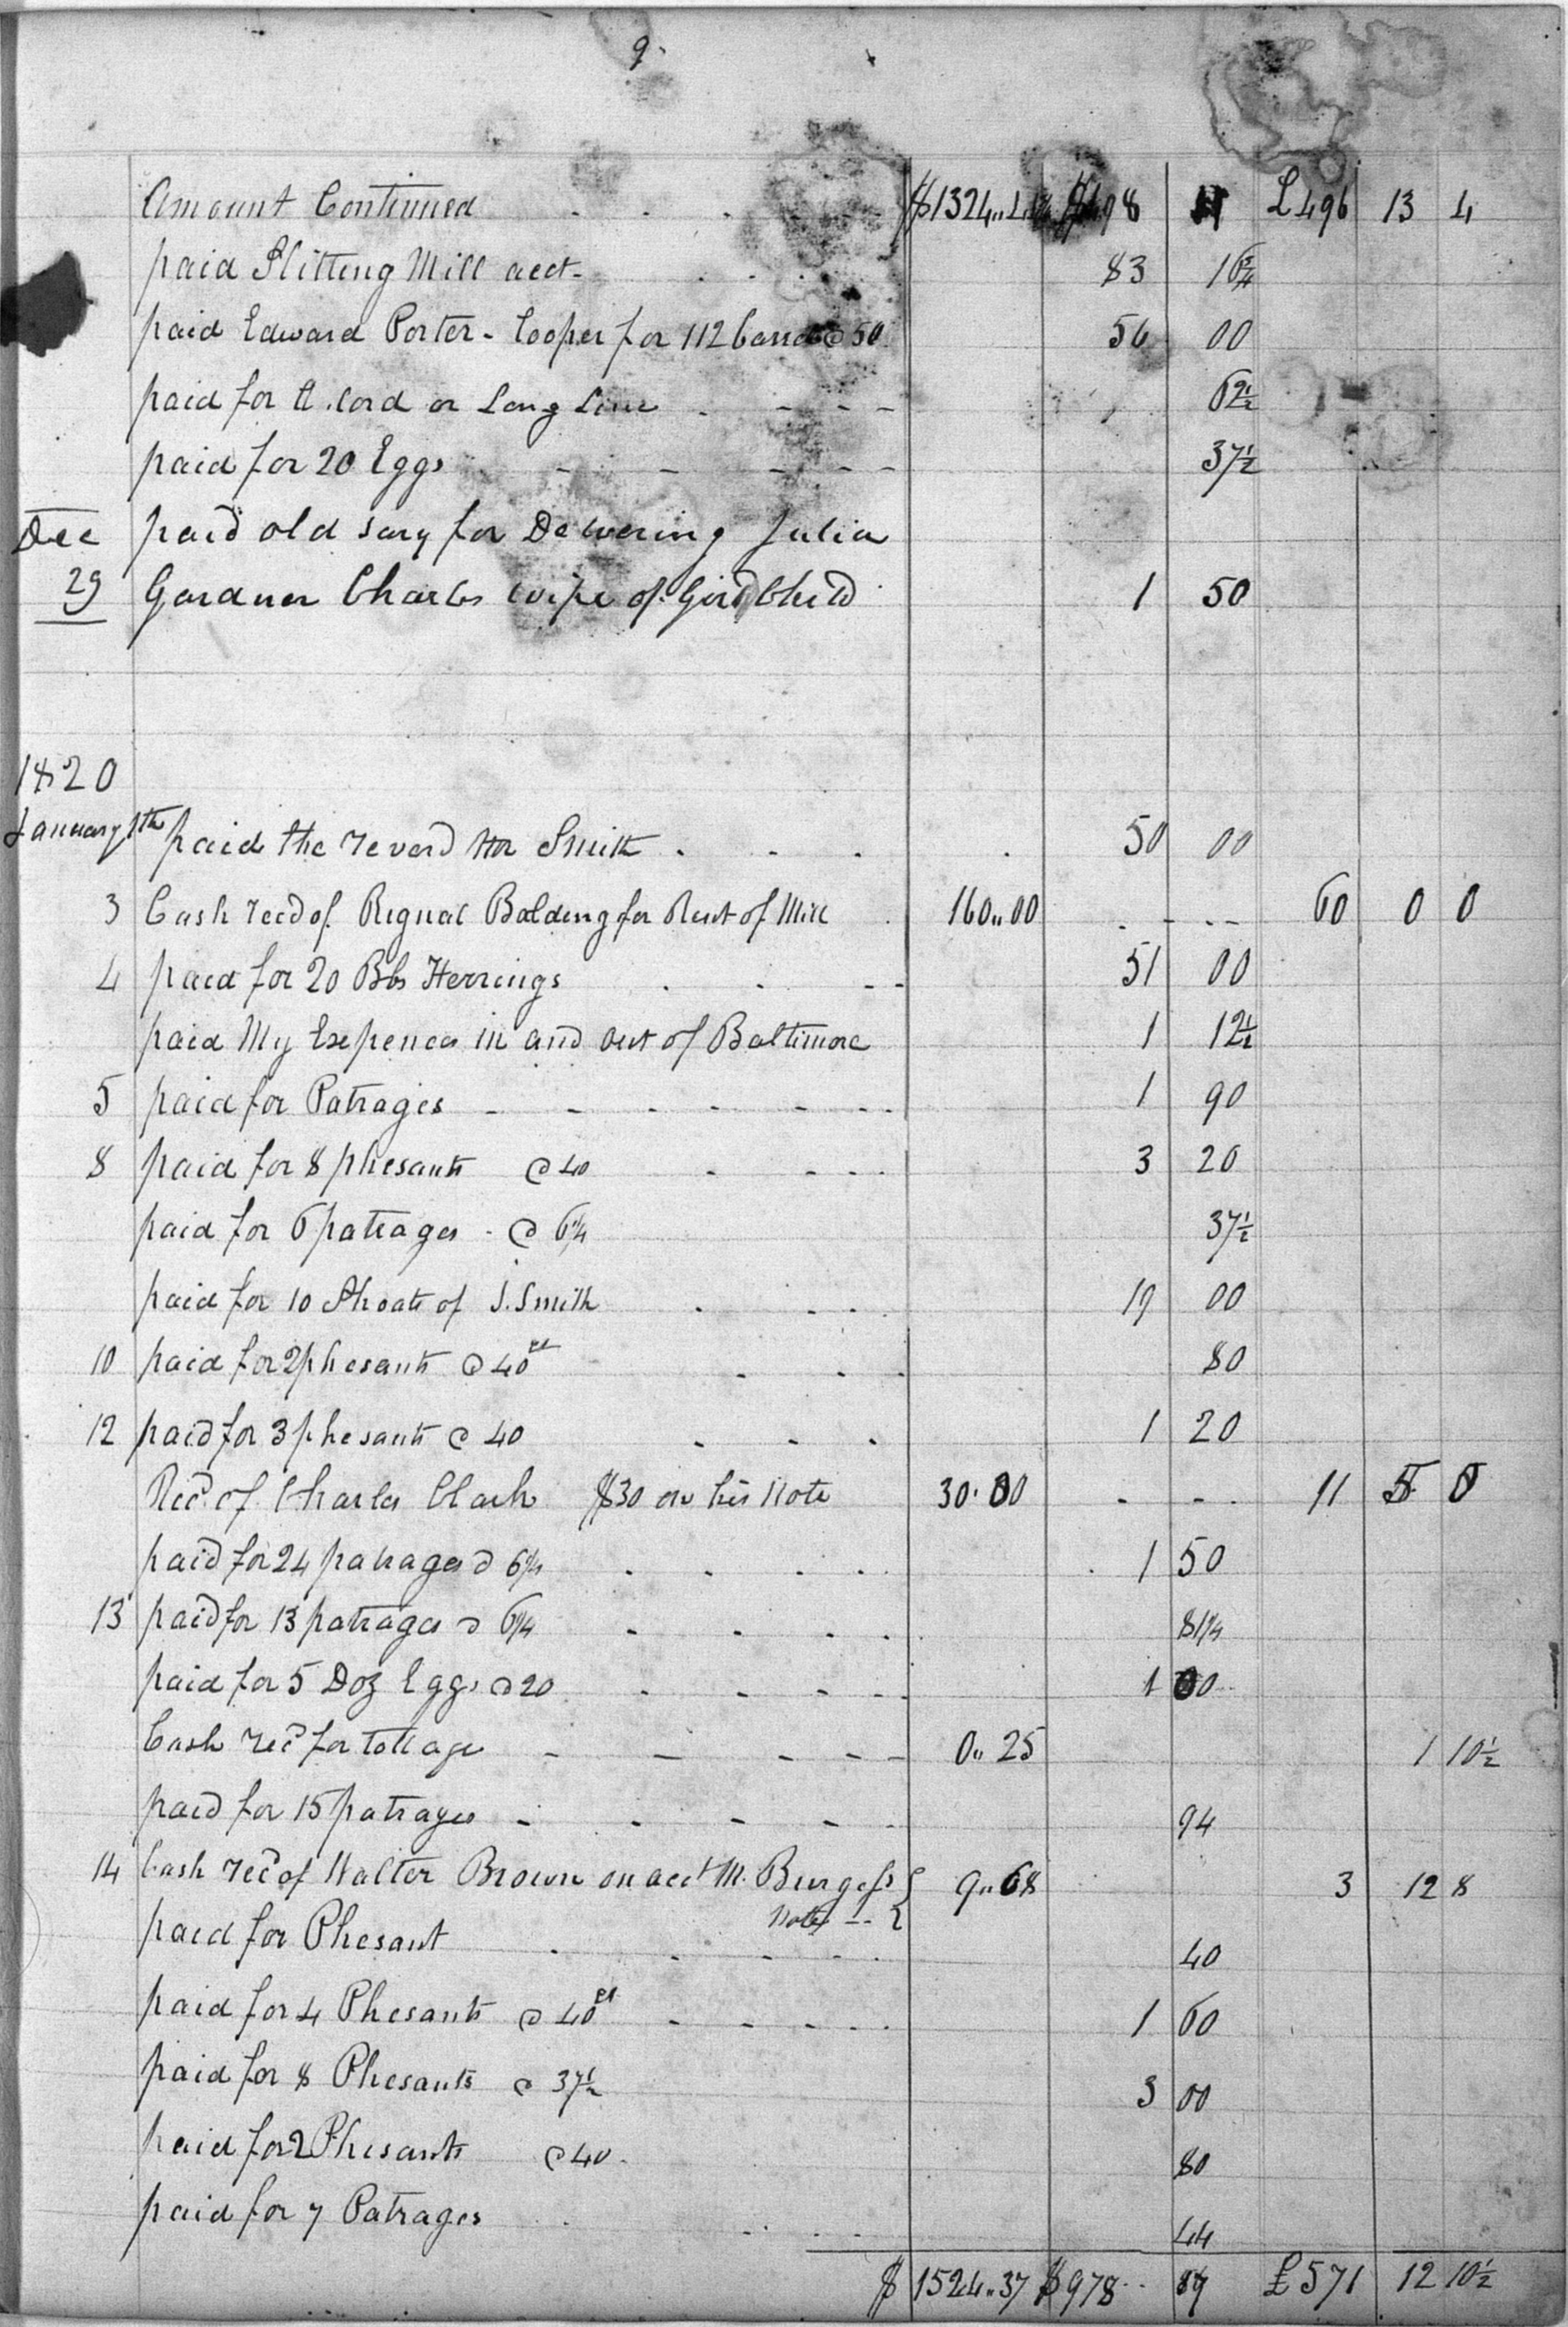 9.
Amount Continued $1324,, $ 98 £496 13 4
paid Slitting Mill acct- 83 16¾
paid Edward Porter - Cooper for 112 @ 50. 56 00
paid for A. Cord or Long Line 62½
paid for 20 Eggs 37½
Dec paid old sary for Delivering Julia
29 Gardner Charles wife of Gird Child 1 50
1820
January 1th paid the reverd Mr Smith 50 00
3 Cash recd of Rignal Bolding for Rent of Mill 160,,00 60 0 0
4 paid for 20 Bbs Herrings 51 00
paid My Expences in and out of Baltimore 1 12½
5 paid for Patrages 1 90
8 paid for 8 phesants @ 40 3 20
paid for 6 patrages @ 6¼ 37½
paid for 10 Shoats of J. Smith 19 00
10 paid for 2 phesants @ 40ct 80
12 paid for 3 phesants @ 40 1 20
Recd. of Charles Clark $30 on his Note 30.00 11 5 0
paid for 24 patrages @ 6¼ 1 50
13 paid for 13 patrages @ 6¼ 81¼
paid for 5 Doz Eggs @ 20 1 00
Cash recd for tollage 0,, 25 1 10½
paid for 15 patrages 94
14 Cash recd of Walter Brown on acct M. Burgess 9,,68 3 12 8
Note
paid for Phesant 40
paid for 4 Phesants @ 40ct 1 60
paid for 8 Phesants @ 37½ 3 00
paid for 2 Phesants @ 40. 80
paid for 7 Patrages 44
$ 1524,,37 $978 £571 12 10½